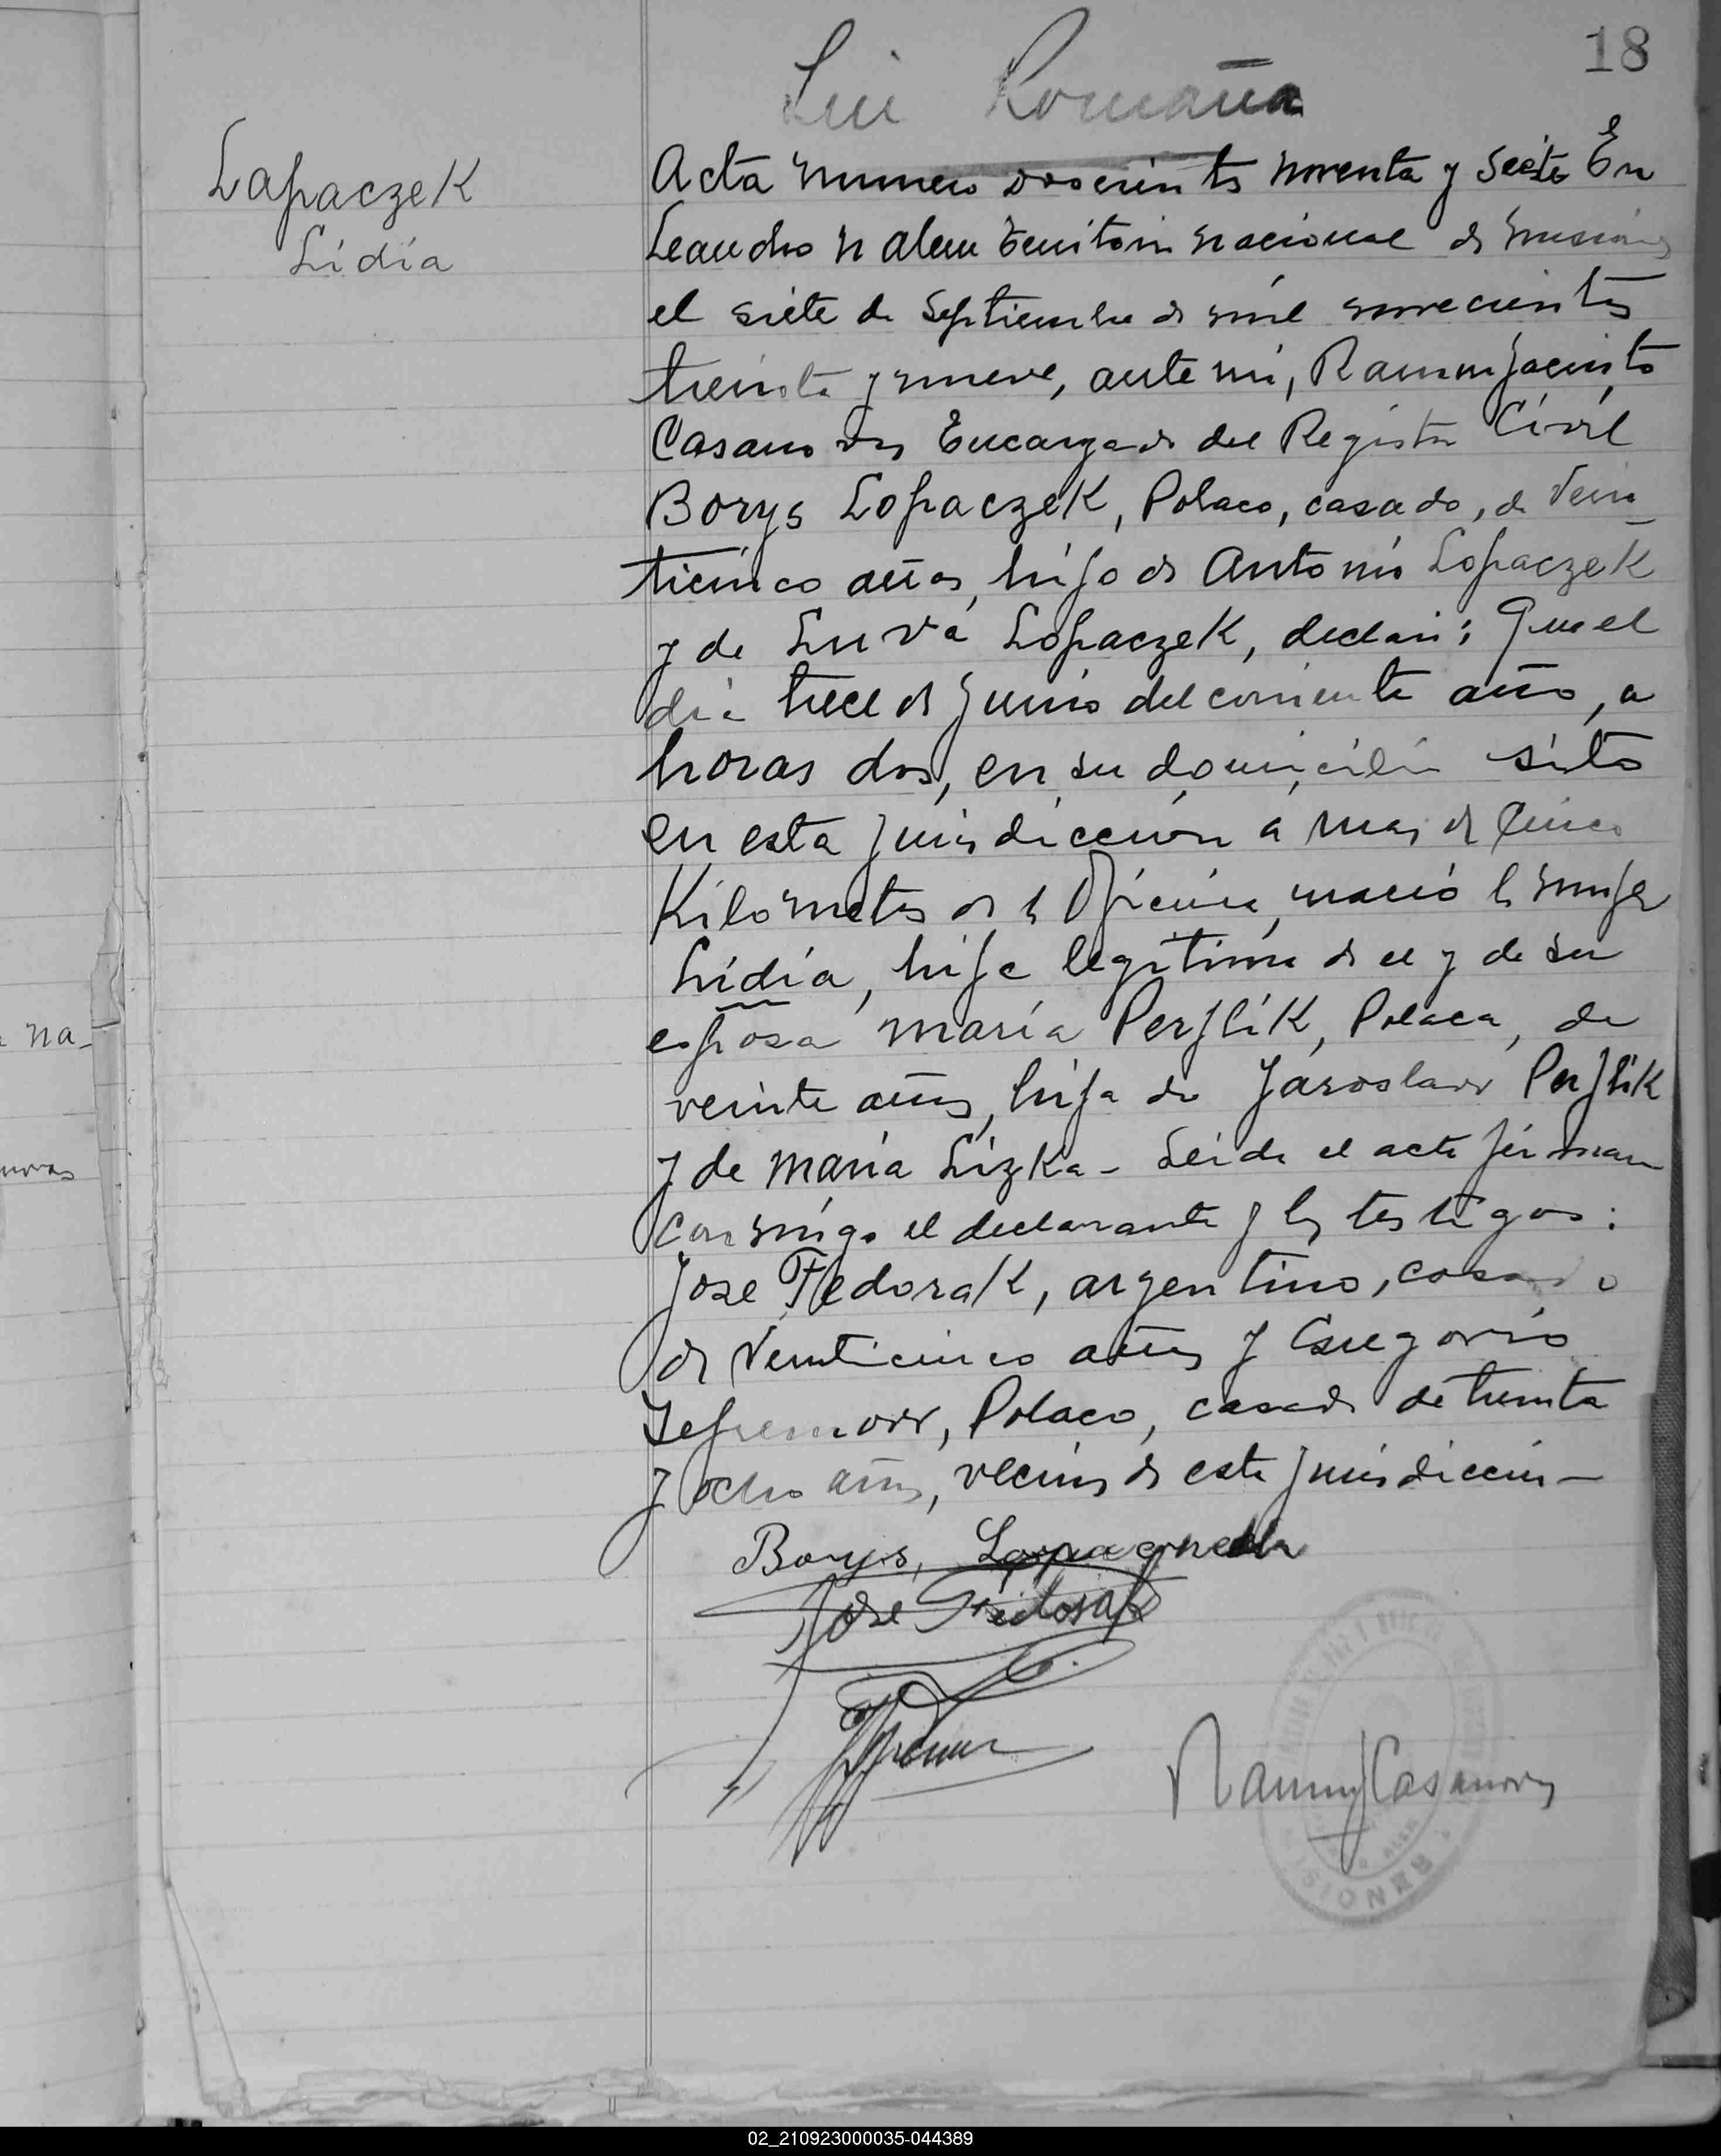 18
Lapaczek
Lidia
Acta numero doscientos noventa y siete En
Leandro N Alem Territorio nacional de Misiones
el siete de Septiembre de mil novecientos
treinta y nueve, ante mi, Ramon Jacinto
Casanovas Encargado del Registro Civil
Borys Lopaczek, Polaco, casado, de Vein
ticinco años, hijo de Antonio Lopaczek
y de Luva Lopaczek, declaró: Que el
día trece de Junio del corriente año, a
horas dos, en su domicilio sito
en esta jurisdicción a mas de Cinco
Kilometros de la Oficina, nació la mujer
Lidia, hija legitima de el y de su
esposa María Perjlik, Polaca, de
veinte años, hija de Jaroslavv Perjlik
y de María Lizka - Leida el acta firman
conmigo el declarante y los testigos:
Jose Fedorak, argentino, casado
de Veinticinco años y Gregorio
Jefremovv, Polaco, casado de treinta
y ocho años, vecinos de esta jurisdiccion -
Borys, Lopaczek
Jose Fiedorak
Ramon J Casanovas
na-
novas
02_210923000035-044389